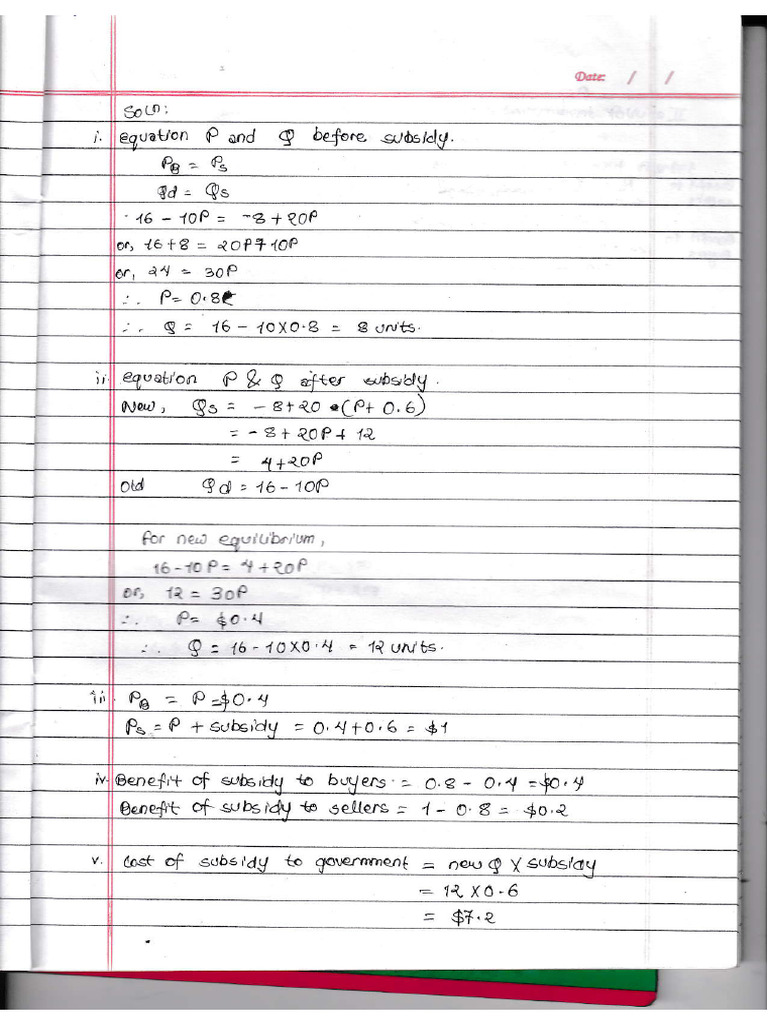 Date: / /
Soln:
i. equation P and Q before subsidy.
PB = Ps
Qd = Qs
16 - 10P = -8 + 20P
or, 16 + 8 = 20P + 10P
or, 24 = 30P
∴ P = 0.8
∴ Q = 16 - 10 X 0.8 = 8 units.
ii. equation P & Q after subsidy.
New, Qs = -8 + 20 (P + 0.6)
= -8 + 20P + 12
= 4 + 20P
Old Qd = 16 - 10P
for new equilibrium,
16 - 10P = 4 + 20P
or, 12 = 30P
∴ P = $0.4
∴ Q = 16 - 10 X 0.4 = 12 units.
iii. PB = P = $0.4
Ps = P + subsidy = 0.4 + 0.6 = $1
iv. Benefit of subsidy to buyers = 0.8 - 0.4 = $0.4
Benefit of subsidy to sellers = 1 - 0.8 = $0.2
v. Cost of subsidy to government = new Q X subsidy
= 12 X 0.6
= $7.2